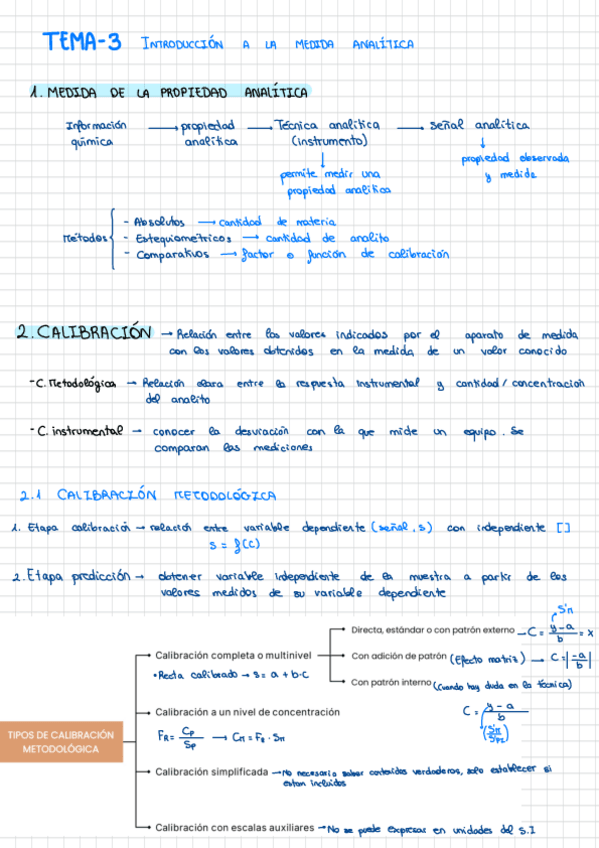 TEMA-3 INTRODUCCIÓN A LA MEDIDA ANALÍTICA
1. MEDIDA DE LA PROPIEDAD ANALÍTICA
Información química → propiedad analítica → Técnica analítica (instrumento) → señal analítica
↓ permite medir una propiedad analítica
↓ propiedad observada y medida
Métodos
- Absolutos → cantidad de materia
- Estequiométricos → cantidad de analito
- Comparativos → factor o función de calibración
2. CALIBRACIÓN → Relación entre los valores indicados por el aparato de medida
con los valores obtenidos en la medida de un valor conocido
- C. Metodológica → Relación clara entre la respuesta instrumental y cantidad/concentracion
del analito
- C. instrumental → conocer la desviación con la que mide un equipo. Se
comparan las mediciones
2.1 CALIBRACIÓN METODOLÓGICA
1. Etapa calibración → relación entre variable dependiente (señal, s) con independiente []
s = f(C)
2. Etapa predicción → obtener variable independiente de la muestra a partir de los
valores medidos de su variable dependiente
TIPOS DE CALIBRACIÓN
METODOLÓGICA
Calibración completa o multinivel
• Recta calibrado → s = a + b·C
Directa, estándar o con patrón externo → C = y-a / b = x
Sm
Con adición de patrón (Efecto matriz) → C = |-a / b|
Con patrón interno (Cuando hay duda en la técnica)
C = y-a / b
(Sm / SPI)
Calibración a un nivel de concentración
FR = Cp / Sp → Cm = FR · Sm
Calibración simplificada → No necesario saber contenidos verdaderos, solo establecer si
estan incluidos
Calibración con escalas auxiliares → No se puede expresar en unidades del S.I